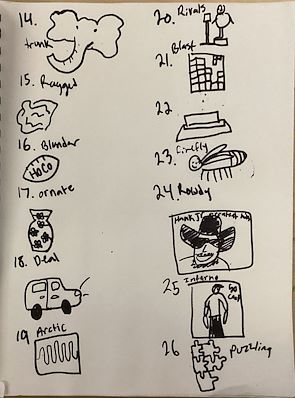 14.
trunk
15.
Ragged
16. Blunder
HoCo
17. ornate
18. Deal
19 Arctic
20. Rivals
Blast
21.
22
23. firefly
24. Rowdy
Hank Jr
25 Inferno
50
Cent
26 puzzling